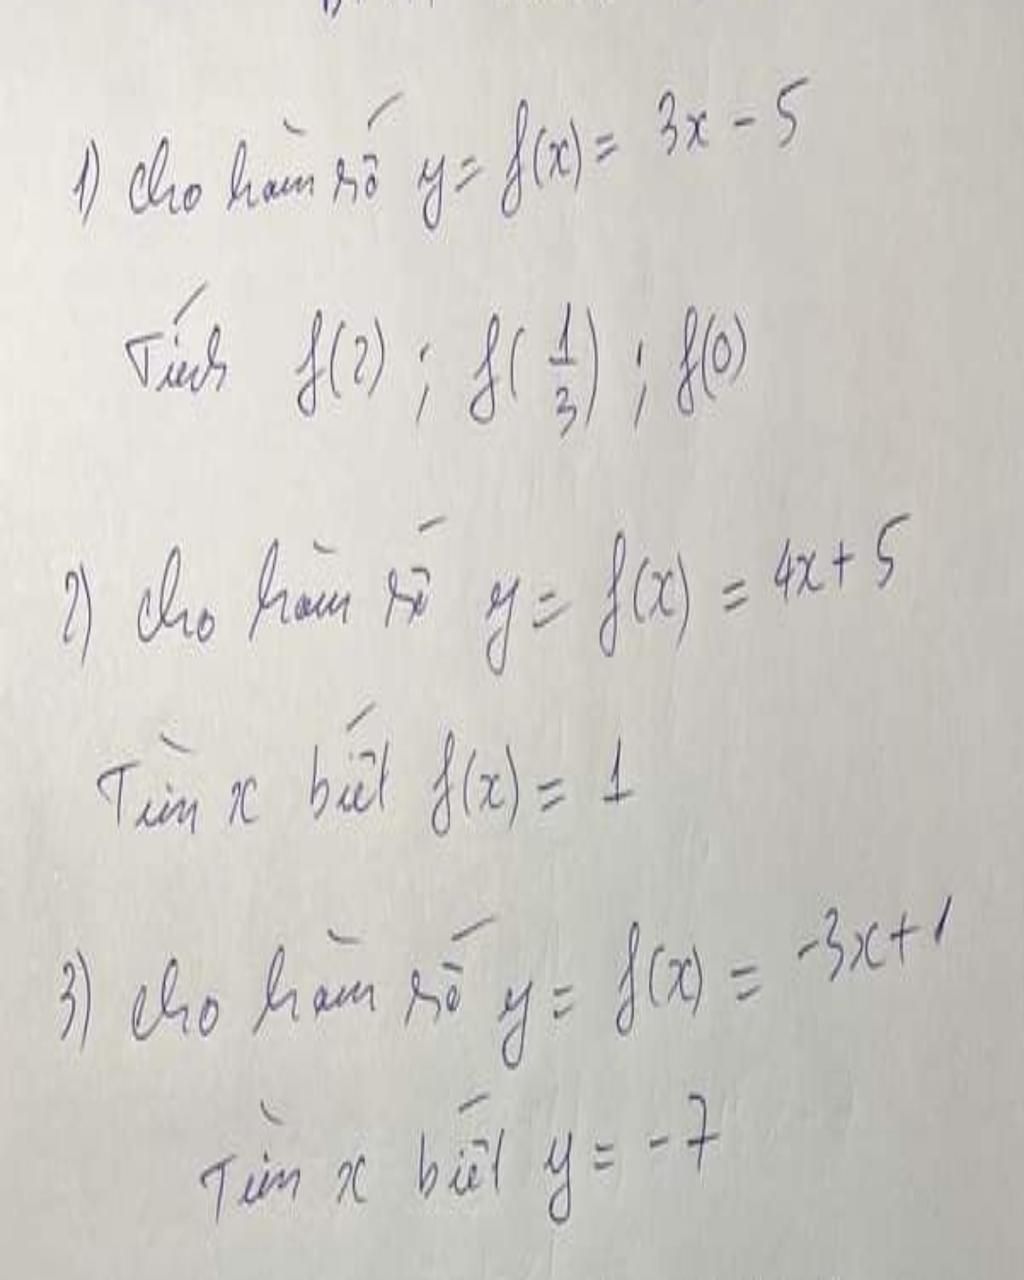 1) Cho hàm số y = f(x) = 3x - 5
Tính f(2) ; f(1/3) ; f(0)
2) Cho hàm số y = f(x) = 4x + 5
Tìm x biết f(x) = 1
3) Cho hàm số y = f(x) = -3x + 1
Tìm x biết y = -7